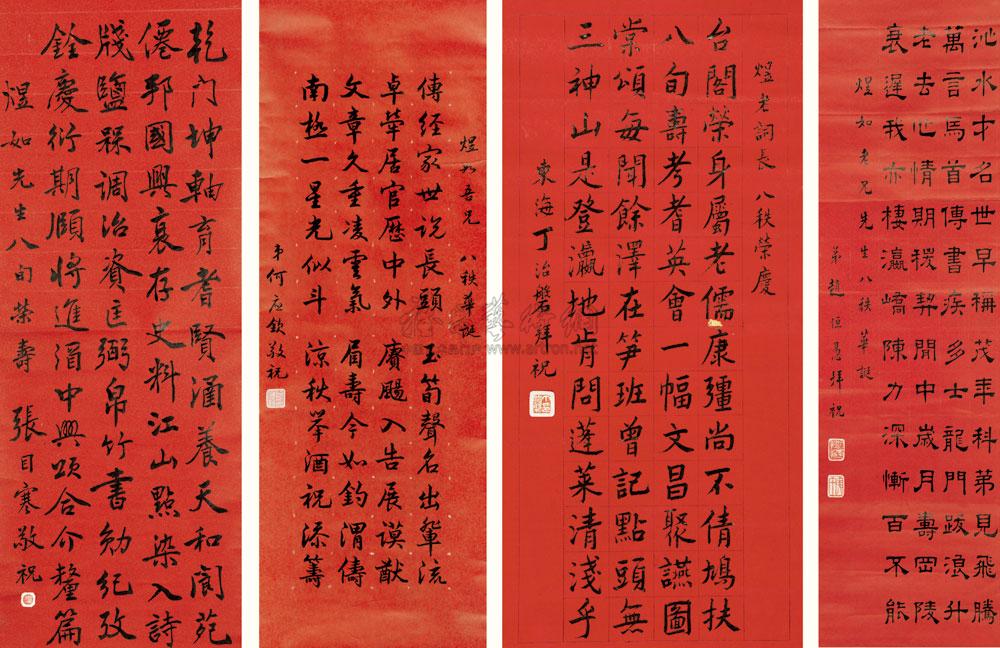 沁水才名世早稱茂年科弟見飛騰
萬言馬首傳書疾多士龍門跋浪升
老去心情期稷契閒中歲月壽岡陵
衰遲我亦棲瀛嶠陳力深慚百不能
煜如老兄先生八秩華誕
弟趙恒惖拜祝
煜老詞長 八秩榮慶
台閣榮身屬老儒康彊尚不倩鳩扶
八旬壽考耆英會一幅文昌聚讌圖
棠頌每聞餘澤在笋班曾記點頭無
三神山是登瀛地肯問蓬萊清淺乎
東海丁治磐拜祝
煜如吾兄 八秩華誕
傳經家世說長頭玉筍聲名出輩流
卓犖居官歷中外賡颺入告展謨猷
文章久重凌雲氣眉壽今如釣渭儔
南極一星光似斗涼秋举酒祝添籌
弟何应欽敬祝
乾門坤軸育耆賢涵養天和閬苑
僊邦國興衰存史料江山點染入詩
牋鹽槑調治資匡弼帛竹書勛紀攷
銓慶衍期頤將進酒中興頌合介釐篇
煜如先生八旬榮壽 張目寒敬祝